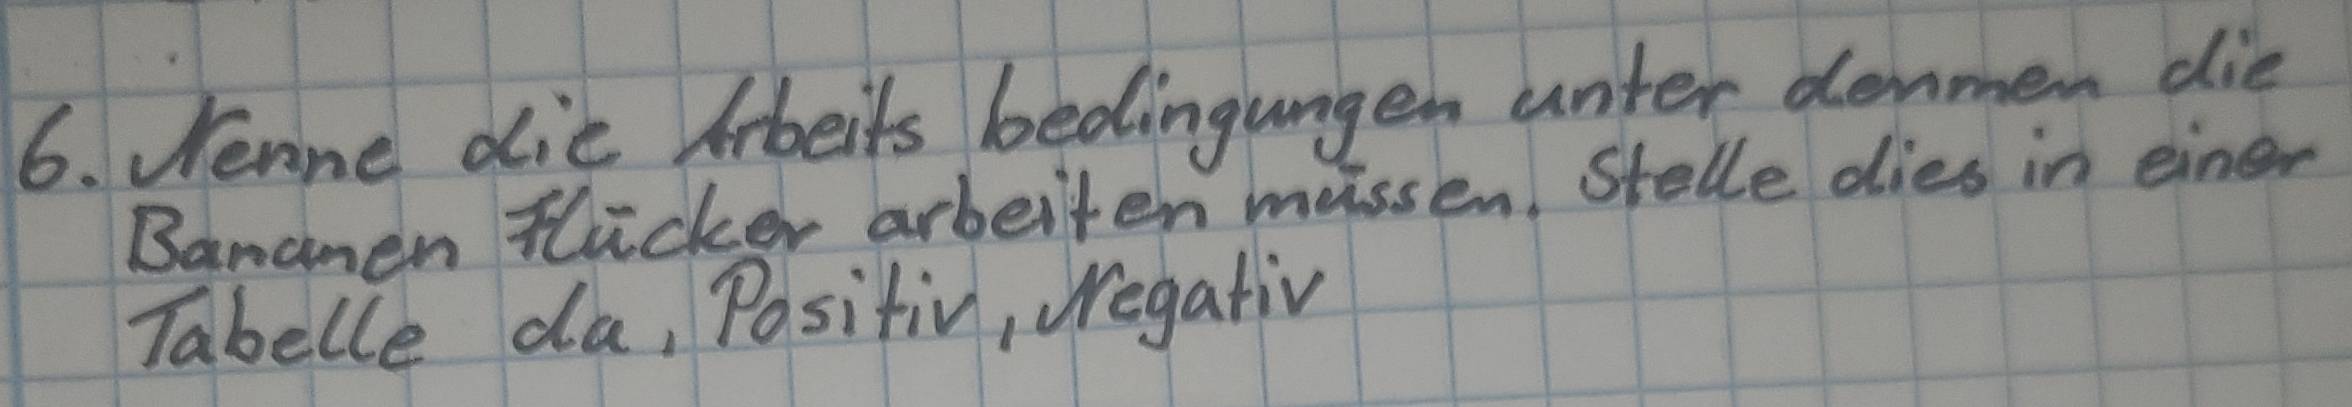 6. Nenne die Arbeits bedingungen unter denmen die
Bananen Flücker arbeiten müssen. Stelle dies in einer
Tabelle da, Positiv, Negativ